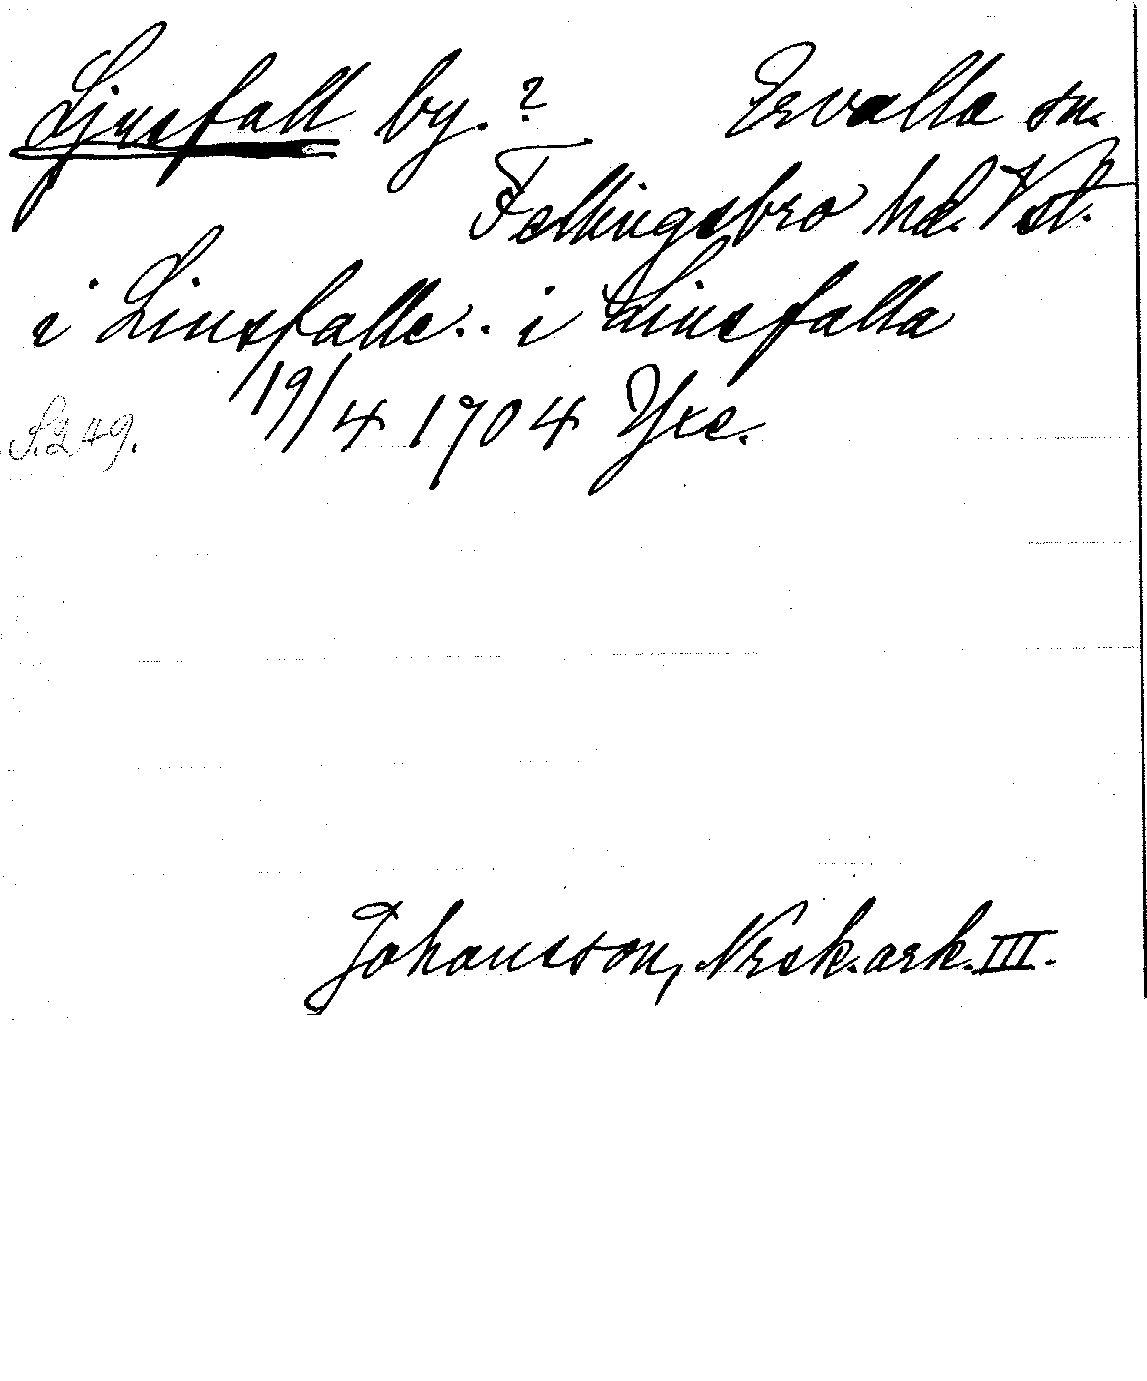 Ljusfall by. ? Ervalla sn.
Fellingsbro hd. Vstl.
i Liusfalle.. i Liusfalla
19/4 1704
S. 249.
Johansson, Nrsk. ark. III.